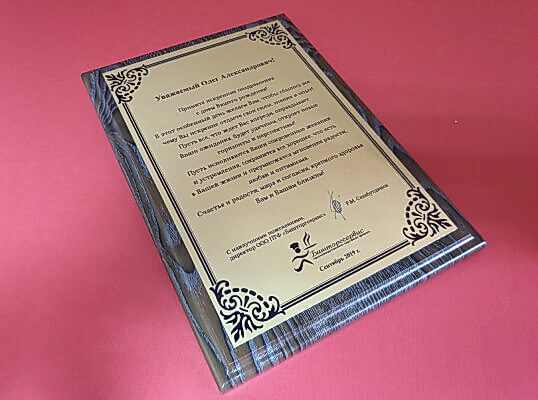 Уважаемый Олег Александрович!
Примите искренние поздравления
с днем Вашего рождения!
В этот особенный день желаем Вам, чтобы сбылось все,
чему Вы искренне отдаете свои силы, знания и опыт!
Пусть все, что ждет Вас впереди, оправдывает
Ваши ожидания, будет удачным, откроет новые
горизонты и перспективы!
Пусть исполняются Ваши сокровенные желания
и устремления, сохранится все хорошее, что есть
в Вашей жизни и преумножатся мгновения радости,
любви и оптимизма.
Счастья и радости, мира и согласия, крепкого здоровья
Вам и Вашим близким!
С наилучшими пожеланиями,
директор ООО ПТФ «Башторгсервис»
Р.М.
Башторгсервис
Сентябрь 2019 г.